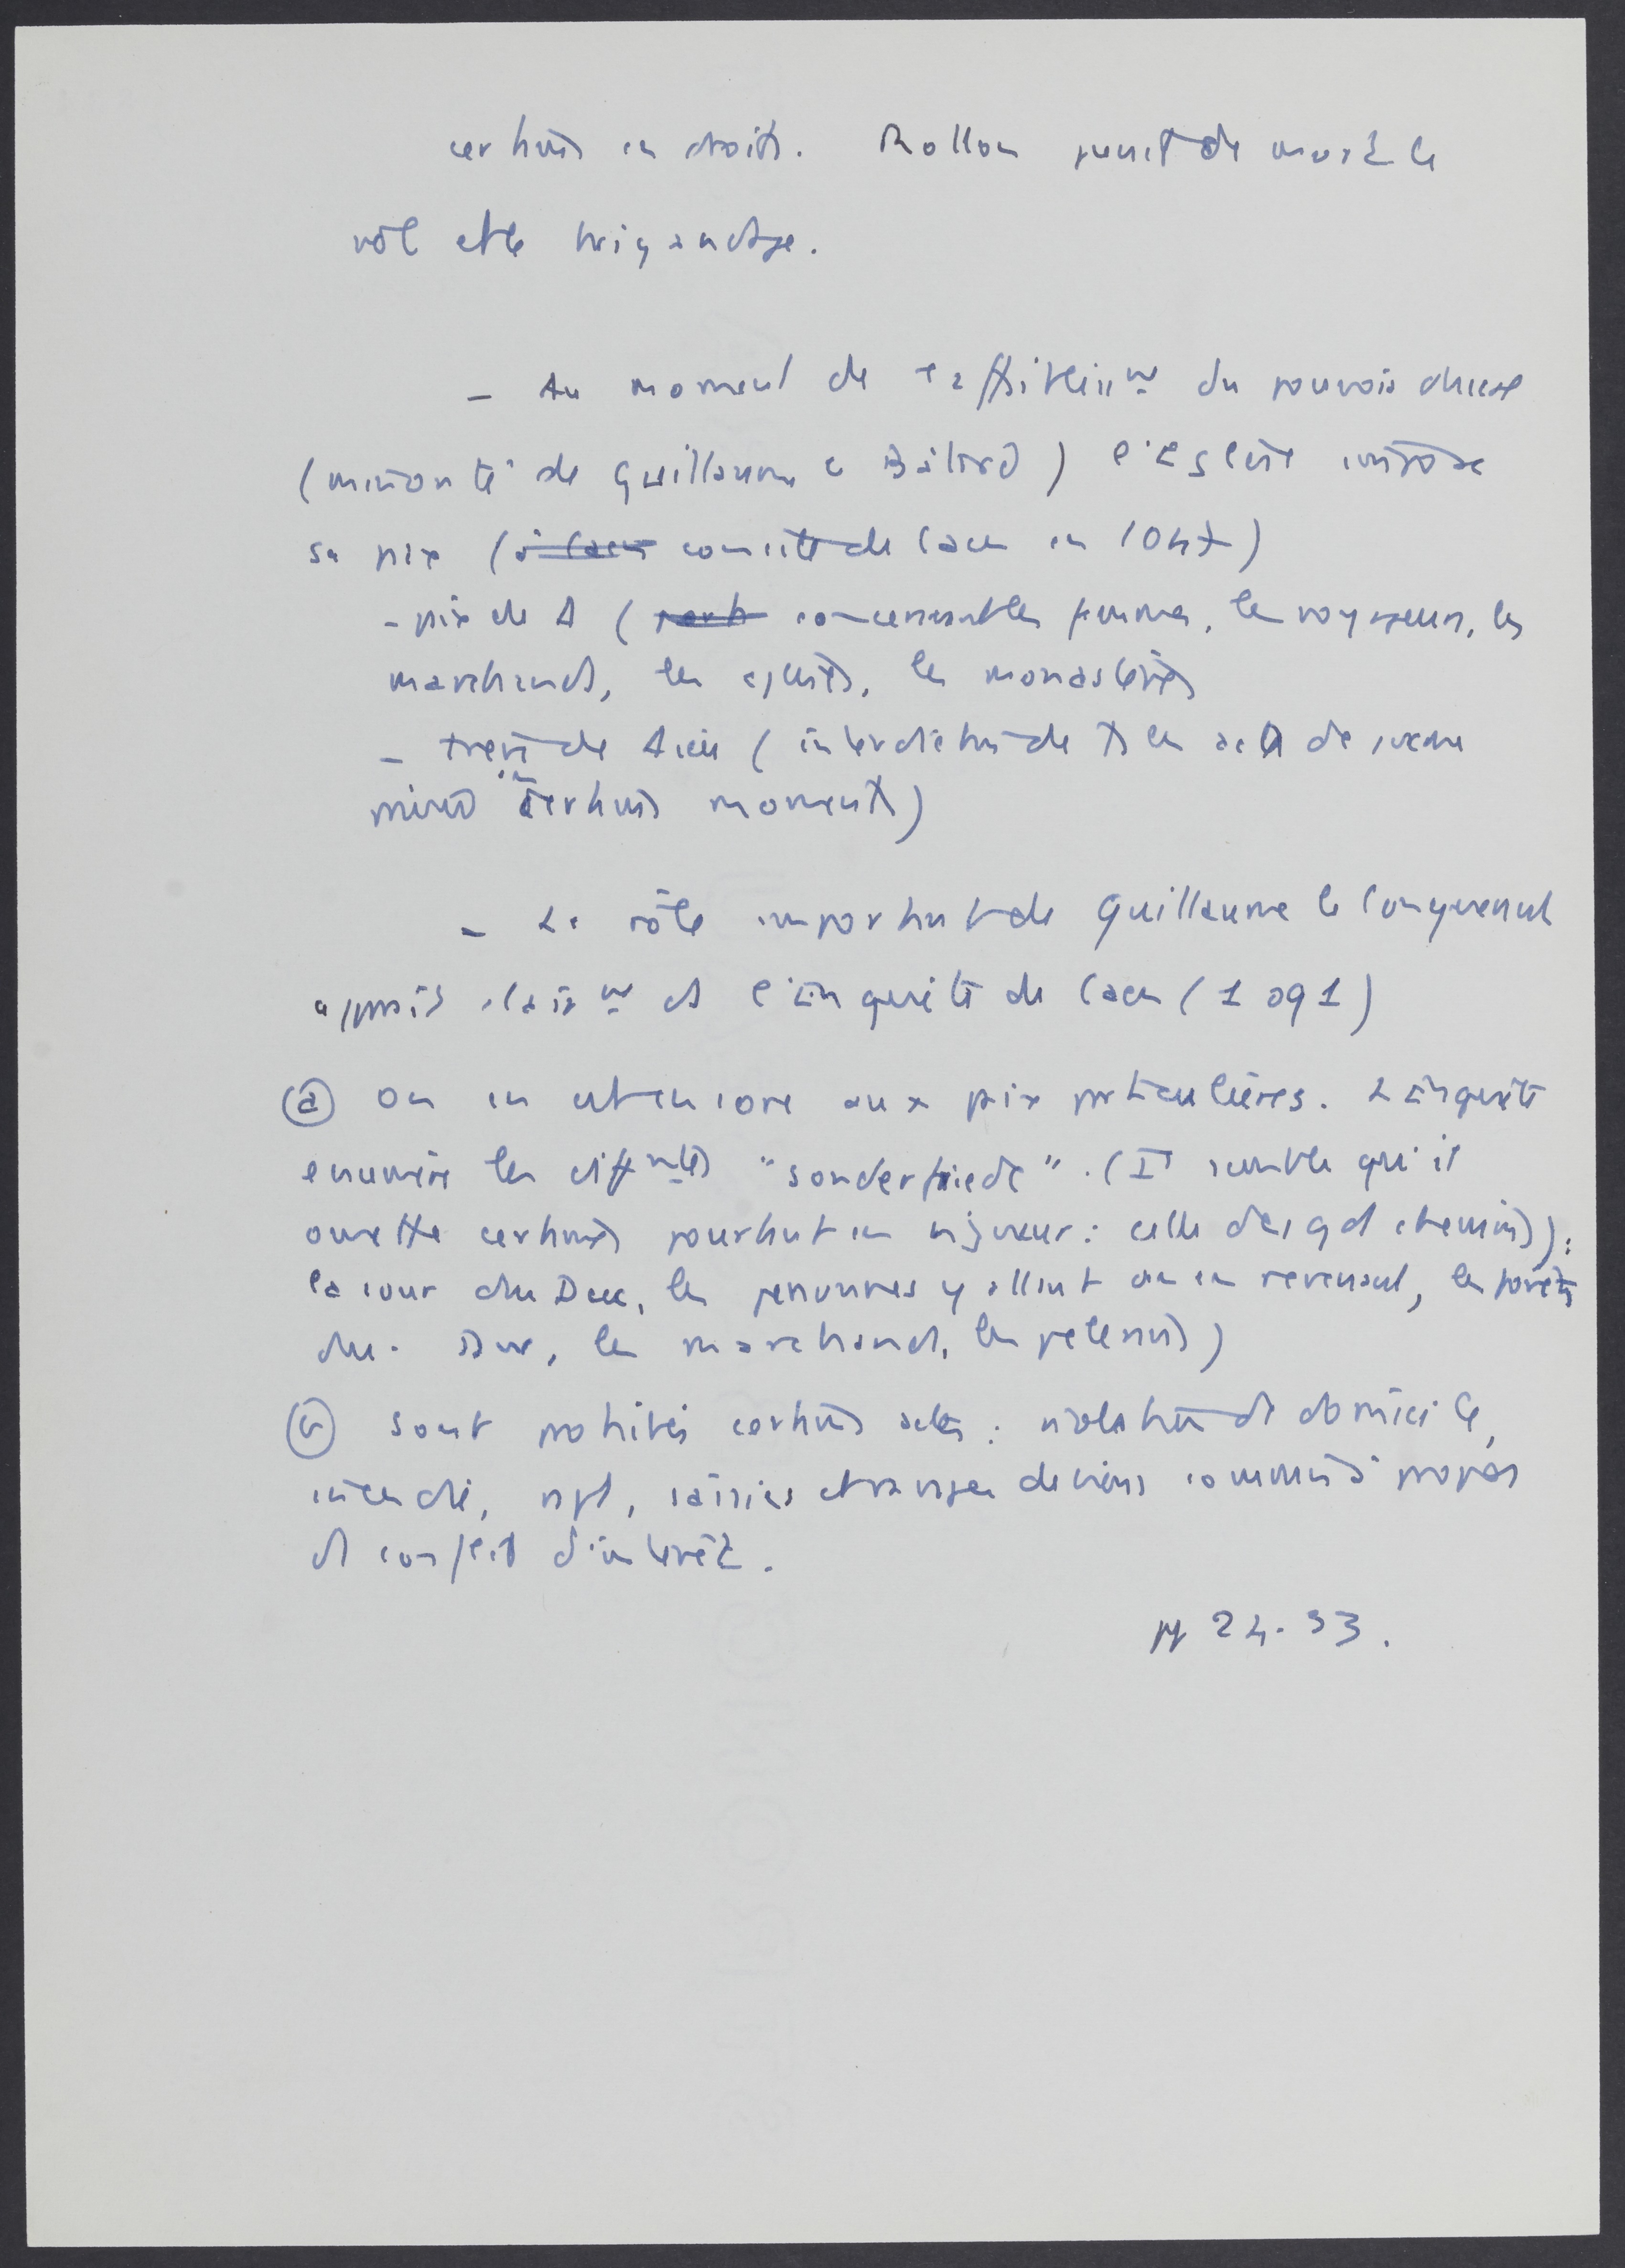 certains endroits. Rollon punit de mort le
vol et le brigandage.
- Au moment de l'affaiblisst du pouvoir ducal
(minorité de Guillaume le Bâtard) l'Eglise impose
sa paix (à Caen concile de Caen en 1047)
- paix de D (port concernant les femmes, les voyageurs, les
marchands, les églises, les monastères
- trève de Dieu (interdiction de ts les actes de guerre
privée en certains moments)
- Le rôle important de Guillaume le Conquérant
apparaît clairmt ds l'Enquête de Caen (1091)
(a) On en est encore aux paix particulières. L'Enquête
enumère les diffrentes "sonderfriede". (Il semble qu'il
omette certaines pourtant en vigueur: celle des gd chemins):
la cour du Duc, les personnes y allant ou en revenant, les forêts
du Duc, les marchands, les pelerins)
(b) Sont prohibés certains actes: violation de domicile,
incendie, rapt, saisies de biens commis à propos
de conflit d'intérêt.
pp 24-33.